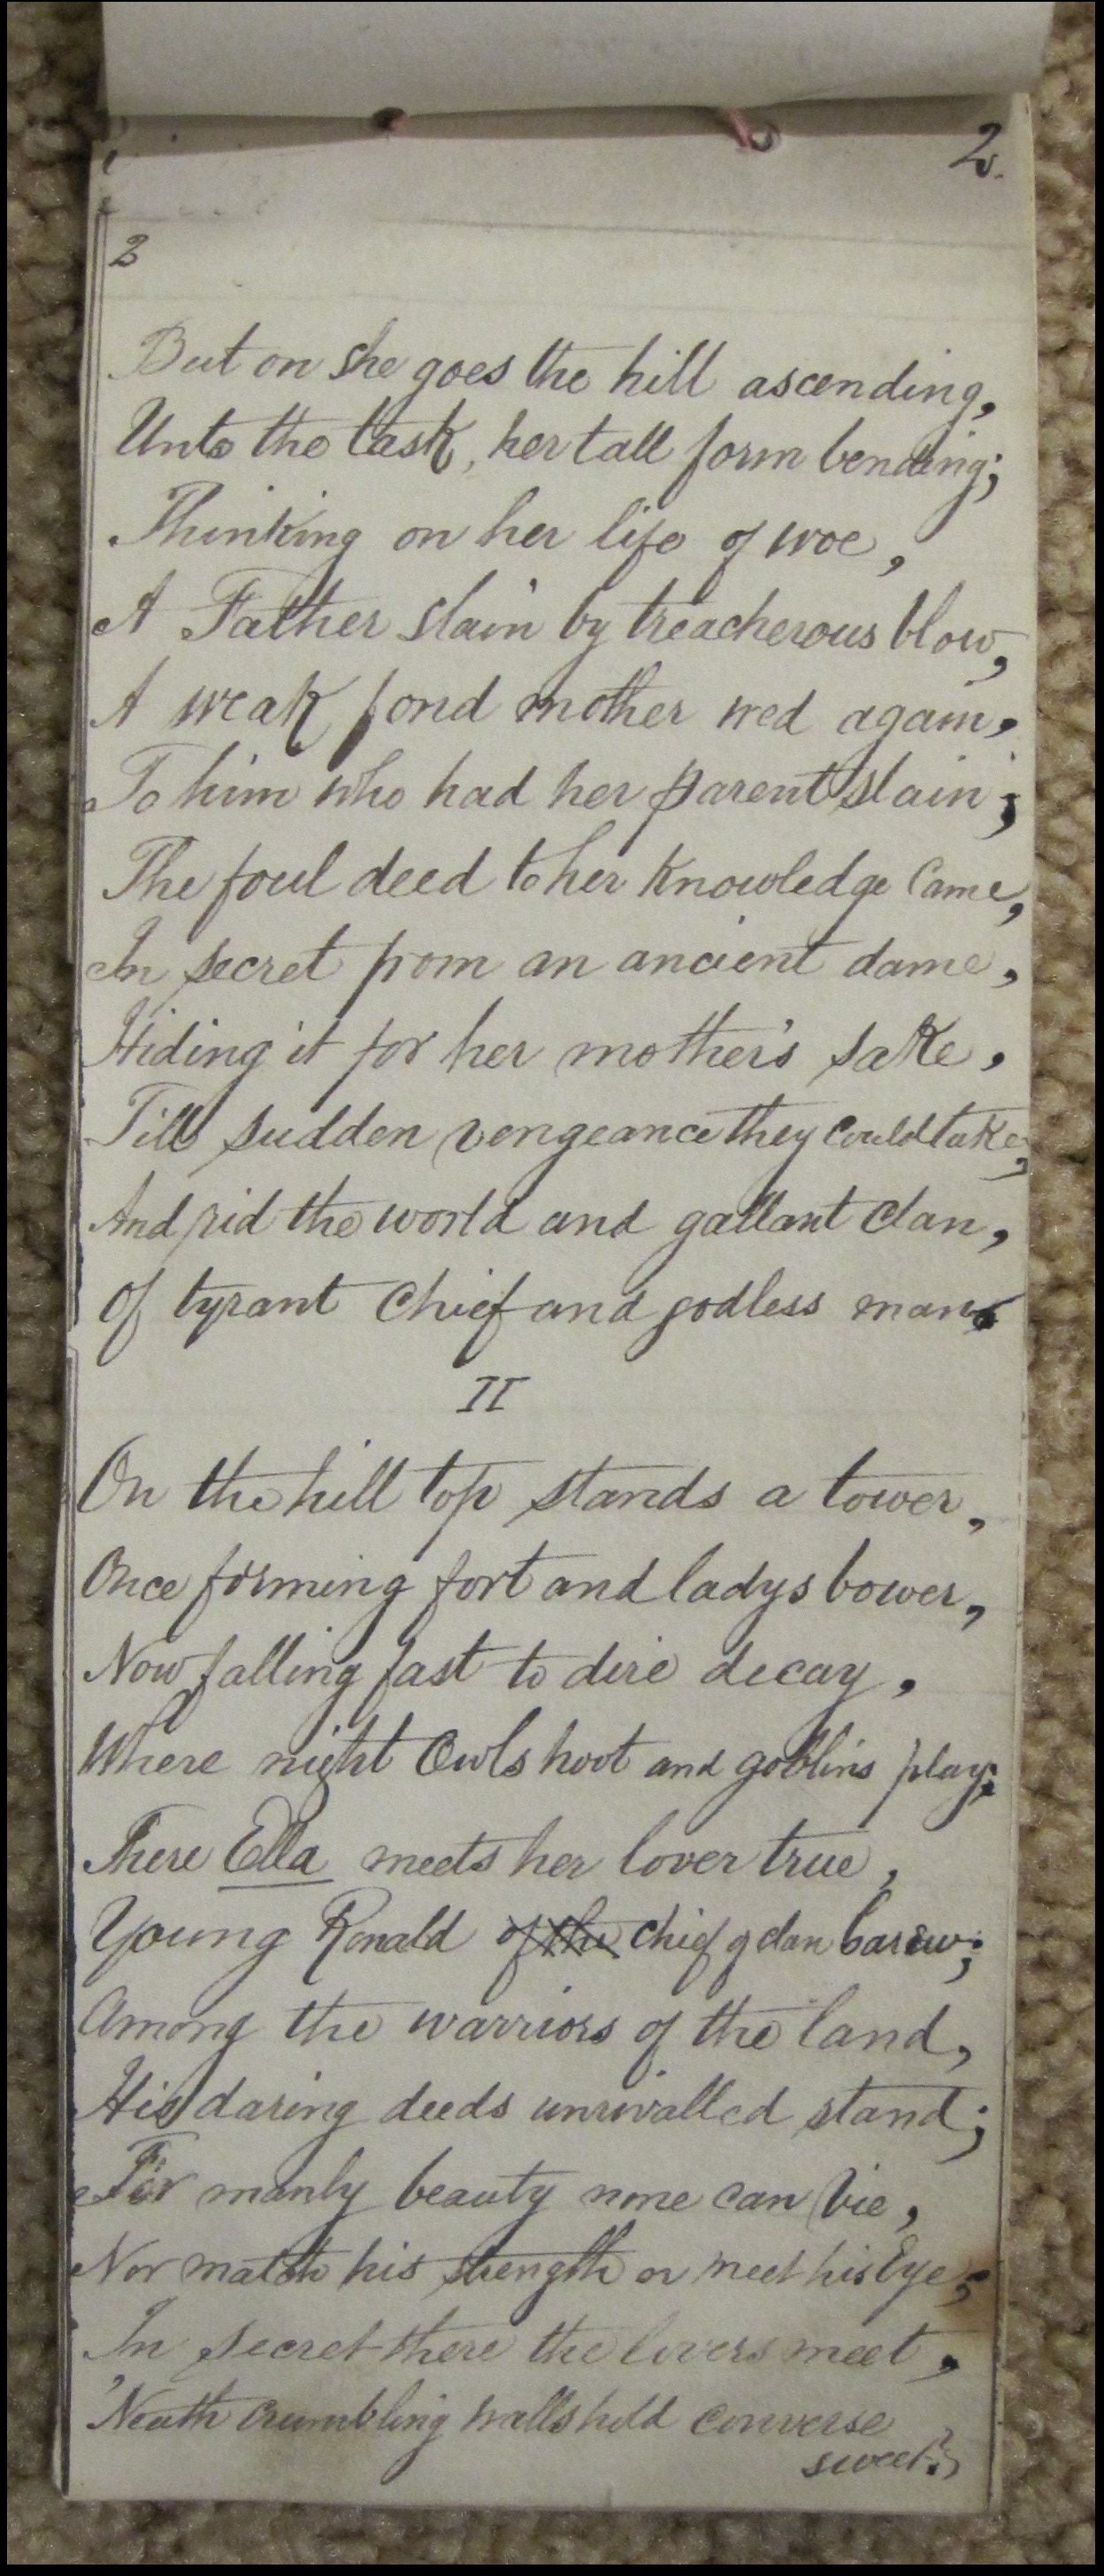 2.
2
But on she goes the hill ascending,
Unto the task, her tall form bending;
Thinking on her life of woe,
A Father slain by treacherous blow,
A weak fond mother wed again,
To him who had her parent slain;
The foul deed to her knowledge Came,
In secret from an ancient dame,
Hiding it for her mother's sake,
Till sudden vengeance they could take,
And rid the world and gallant Clan,
Of tyrant Chief and godless man
II
On the hill top stands a tower,
Once forming fort and ladys bower,
Now falling fast to dire decay,
Where night Owls hoot and goblins play;
There Ella meets her lover true,
Young Ronald of the chief of clan
Among the warriors of the land,
His daring deeds unrivalled stand;
For manly beauty none can vie,
Nor match his strength or meet his Eye;
In secret there the lovers meet,
'Neath crumbling walls hold converse
sweet;